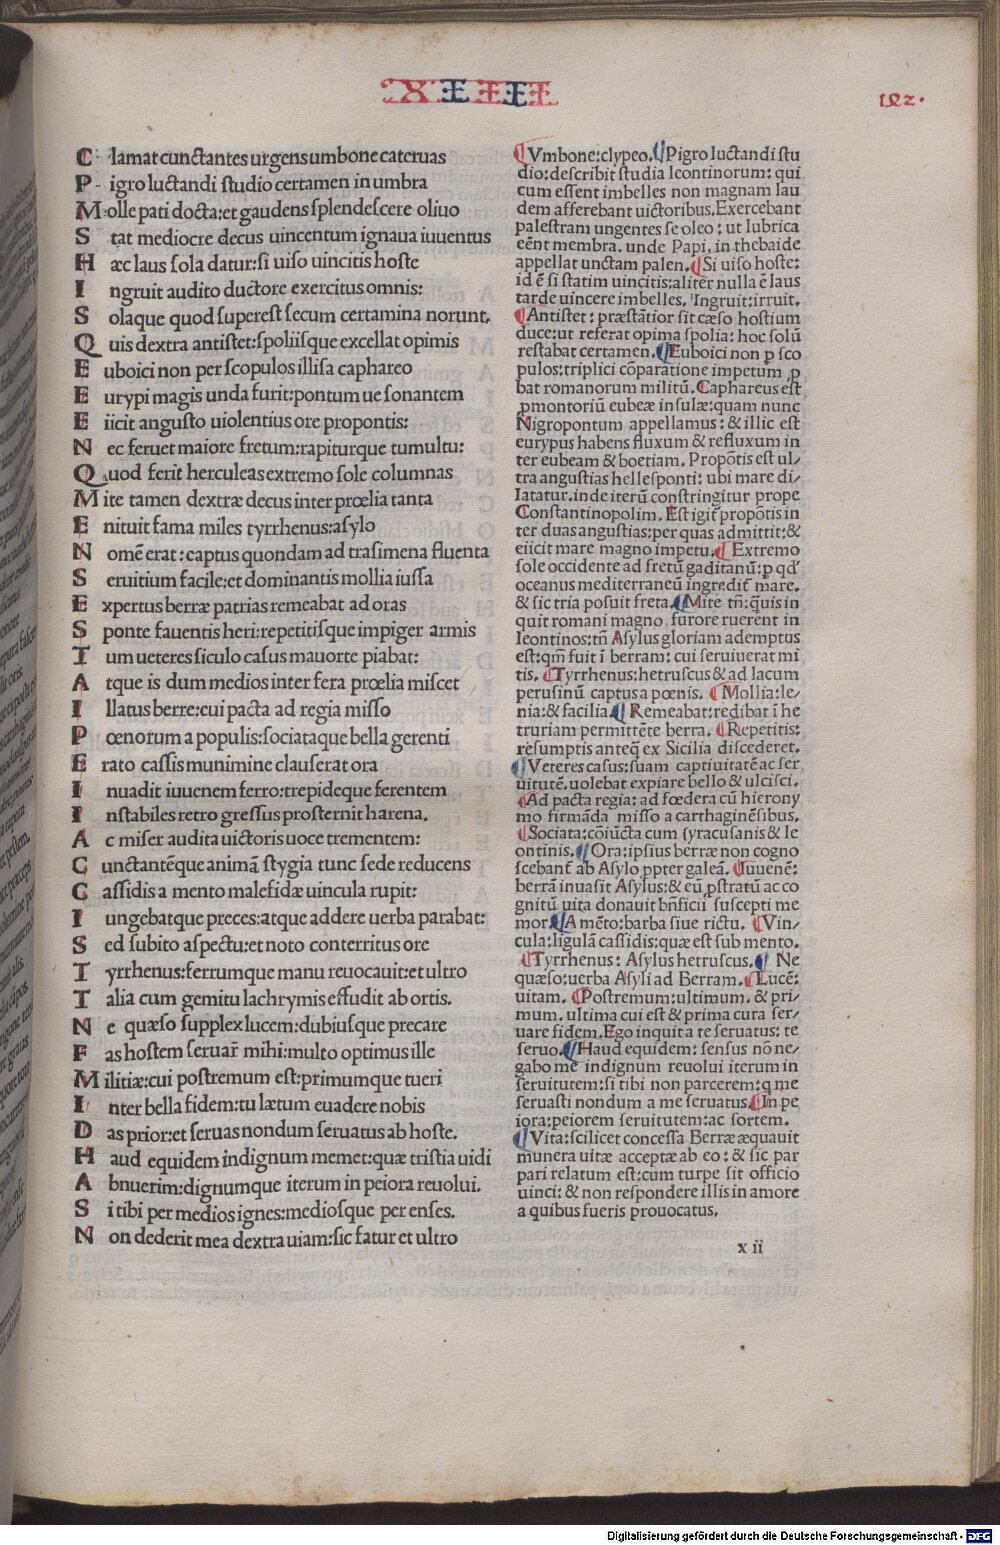 XIIII
162.
Clamat cunctantes urgens umbone cateruas
Pigro luctandi studio certamen in umbra
Molle pati docta:et gaudens splendescere oliuo
Stat mediocre decus uincentum ignaua iuuentus
Hæc laus sola datur:si uiso uincitis hoste
Ingruit audito ductore exercitus omnis:
Solaque quod superest secum certamina norunt.
Quis dextra antistet:spoliisque excellat opimis
Euboici non per scopulos illisa caphareo
Eurypi magis unda furit:pontum ue sonantem
Eiicit angusto uiolentius ore propontis:
Nec feruet maiore fretum:rapiturque tumultu:
Quod ferit herculeas extremo sole columnas
Mite tamen dextræ decus inter prœlia tanta
Enituit fama miles tyrrhenus:asylo
Nomē erat:captus quondam ad trasimena fluenta
Seruitium facile:et dominantis mollia iussa
Expertus berræ patrias remeabat ad oras
Sponte fauentis heri:repetitisque impiger armis
Tum ueteres siculo casus mauorte piabat:
Atque is dum medios inter fera prœlia miscet
Illatus berre:cui pacta ad regia misso
Pœnotum a populis:sociataque bella gerenti
Erato cassis munimine clauserat ora
Inuadit iuuenem ferro:trepideque ferentem
Instabiles retro gressus prosternit harena.
Ac miser audita uictoris uoce trementem:
Cunctantēque animā stygia tunc sede reducens
Cassidis a mento malefidæ uincula rupit:
Iungebatque preces:atque addere uerba parabat:
Sed subito aspectu:et noto conterritus ore
Tyrrhenus:ferrumque manu reuocauit:et ultro
Talia cum gemitu lachrymis effudit ab ortis.
Ne quæso supplex lucem:dubiusque precare
Fas hostem seruar̄ mihi:multo optimus ille
Militiæ:cui postremum est:primumque tueri
Inter bella fidem:tu lætum euadere nobis
Das prior:et seruas nondum seruatus ab hoste.
Haud equidem indignum memet:quæ tristia uidi
Abnuerim:dignumque iterum in peiora reuolui.
Si tibi per medios ignes:mediosque per enses.
Non dederit mea dextra uiam:sic fatur et ultro
¶Vmbone:clypeo.¶Pigro luctandi stu
dio:describit studia leontinorum: qui
cum essent imbelles non magnam lau
dem afferebant uictoribus.Exercebant
palestram ungentes se oleo: ut lubrica
eēnt membra. unde Papi. in thebaide
appellat unctam palen.¶Si uiso hoste:
id ē si statim uincitis:aliter nulla ē laus
tarde uincere imbelles. Ingruit:irruit.
¶Antistet: præstātior sit cæso hostium
duce:ut referat opima spolia: hoc solū
restabat certamen.¶Euboici non p sco
pulos:triplici cōparatione impetum ꝓ
bat romanorum militū. Caphareus est
ꝓmontoriū eubeæ insulæ:quam nunc
Nigropontum appellamus: & illic est
eurypus habens fluxum & refluxum in
ter eubeam & boetiam. Propōtis est ul/
tra angustias hellesponti: ubi mare di/
latatur.inde iterū constringitur prope
Constantinopolim. Est igit̄ propōtis in
ter duas angustias:per quas admittit:&
eiicit mare magno impetu.¶Extremo
sole occidente ad fretū gaditanū:p qd'
oceanus mediterraneū ingredit̄ mare.
& sic tria posuit freta.¶Mite tñ: q̄uis in
quit romani magno furore ruerent in
leontinos:tñ Asylus gloriam ademptus
est:qm̄ fuit ī berram: cui seruiuerat mi
tis. ¶Tyrrhenus:hetruscus & ad lacum
perusinū captus a pœnis. ¶Mollia:le/
nia:& facilia.¶Remeabat:redibat ī he
truriam permittēte berra. ¶Repetitis:
resumptis anteq̄ ex Sicilia discederet.
¶Veteres casus:suam captiuitatē ac ser
uitutē.uolebat expiare bello & ulcisci.
¶Ad pacta regia: ad fœdera cū hierony
mo firmāda misso a carthaginēsibus.
¶Sociata:cōiūcta cum syracusanis & le
ontinis.¶Ora:ipsius berræ non cogno
scebant̄ ab Asylo ꝓpter galeā. ¶Iuuenē:
berrā inuasit Asylus:& eū ꝓstratū ac co
gnitū uita donauit bñficii suscepti me
mor.¶A mēto:barba siue rictu. ¶Vin/
cula:ligulā cassidis:quæ est sub mento.
¶Tyrrhenus: Asylus hetruscus.¶ Ne
quæso:uerba Asyli ad Berram.¶Lucē:
uitam. ¶Postremum:ultimum. & pri/
mum. ultima cui est & prima cura ser/
uare fidem.Ego inquit a te seruatus: te
seruo.¶Haud equidem: sensus nō ne/
gabo me indignum reuolui iterum in
seruitutem:si tibi non parcerem:q me
seruasti nondum a me seruatus.¶In pe
iora:peiorem seruitutem:ac sortem.
¶Vita:scilicet concessa Berræ æquauit
munera uitæ acceptæ ab eo: & sic par
pari relatum est:cum turpe sit officio
uinci: & non respondere illis in amore
a quibus fueris prouocatus.
x ii
Digitalisierung gefördert durch die Deutsche Forschungsgemeinschaft - DFG